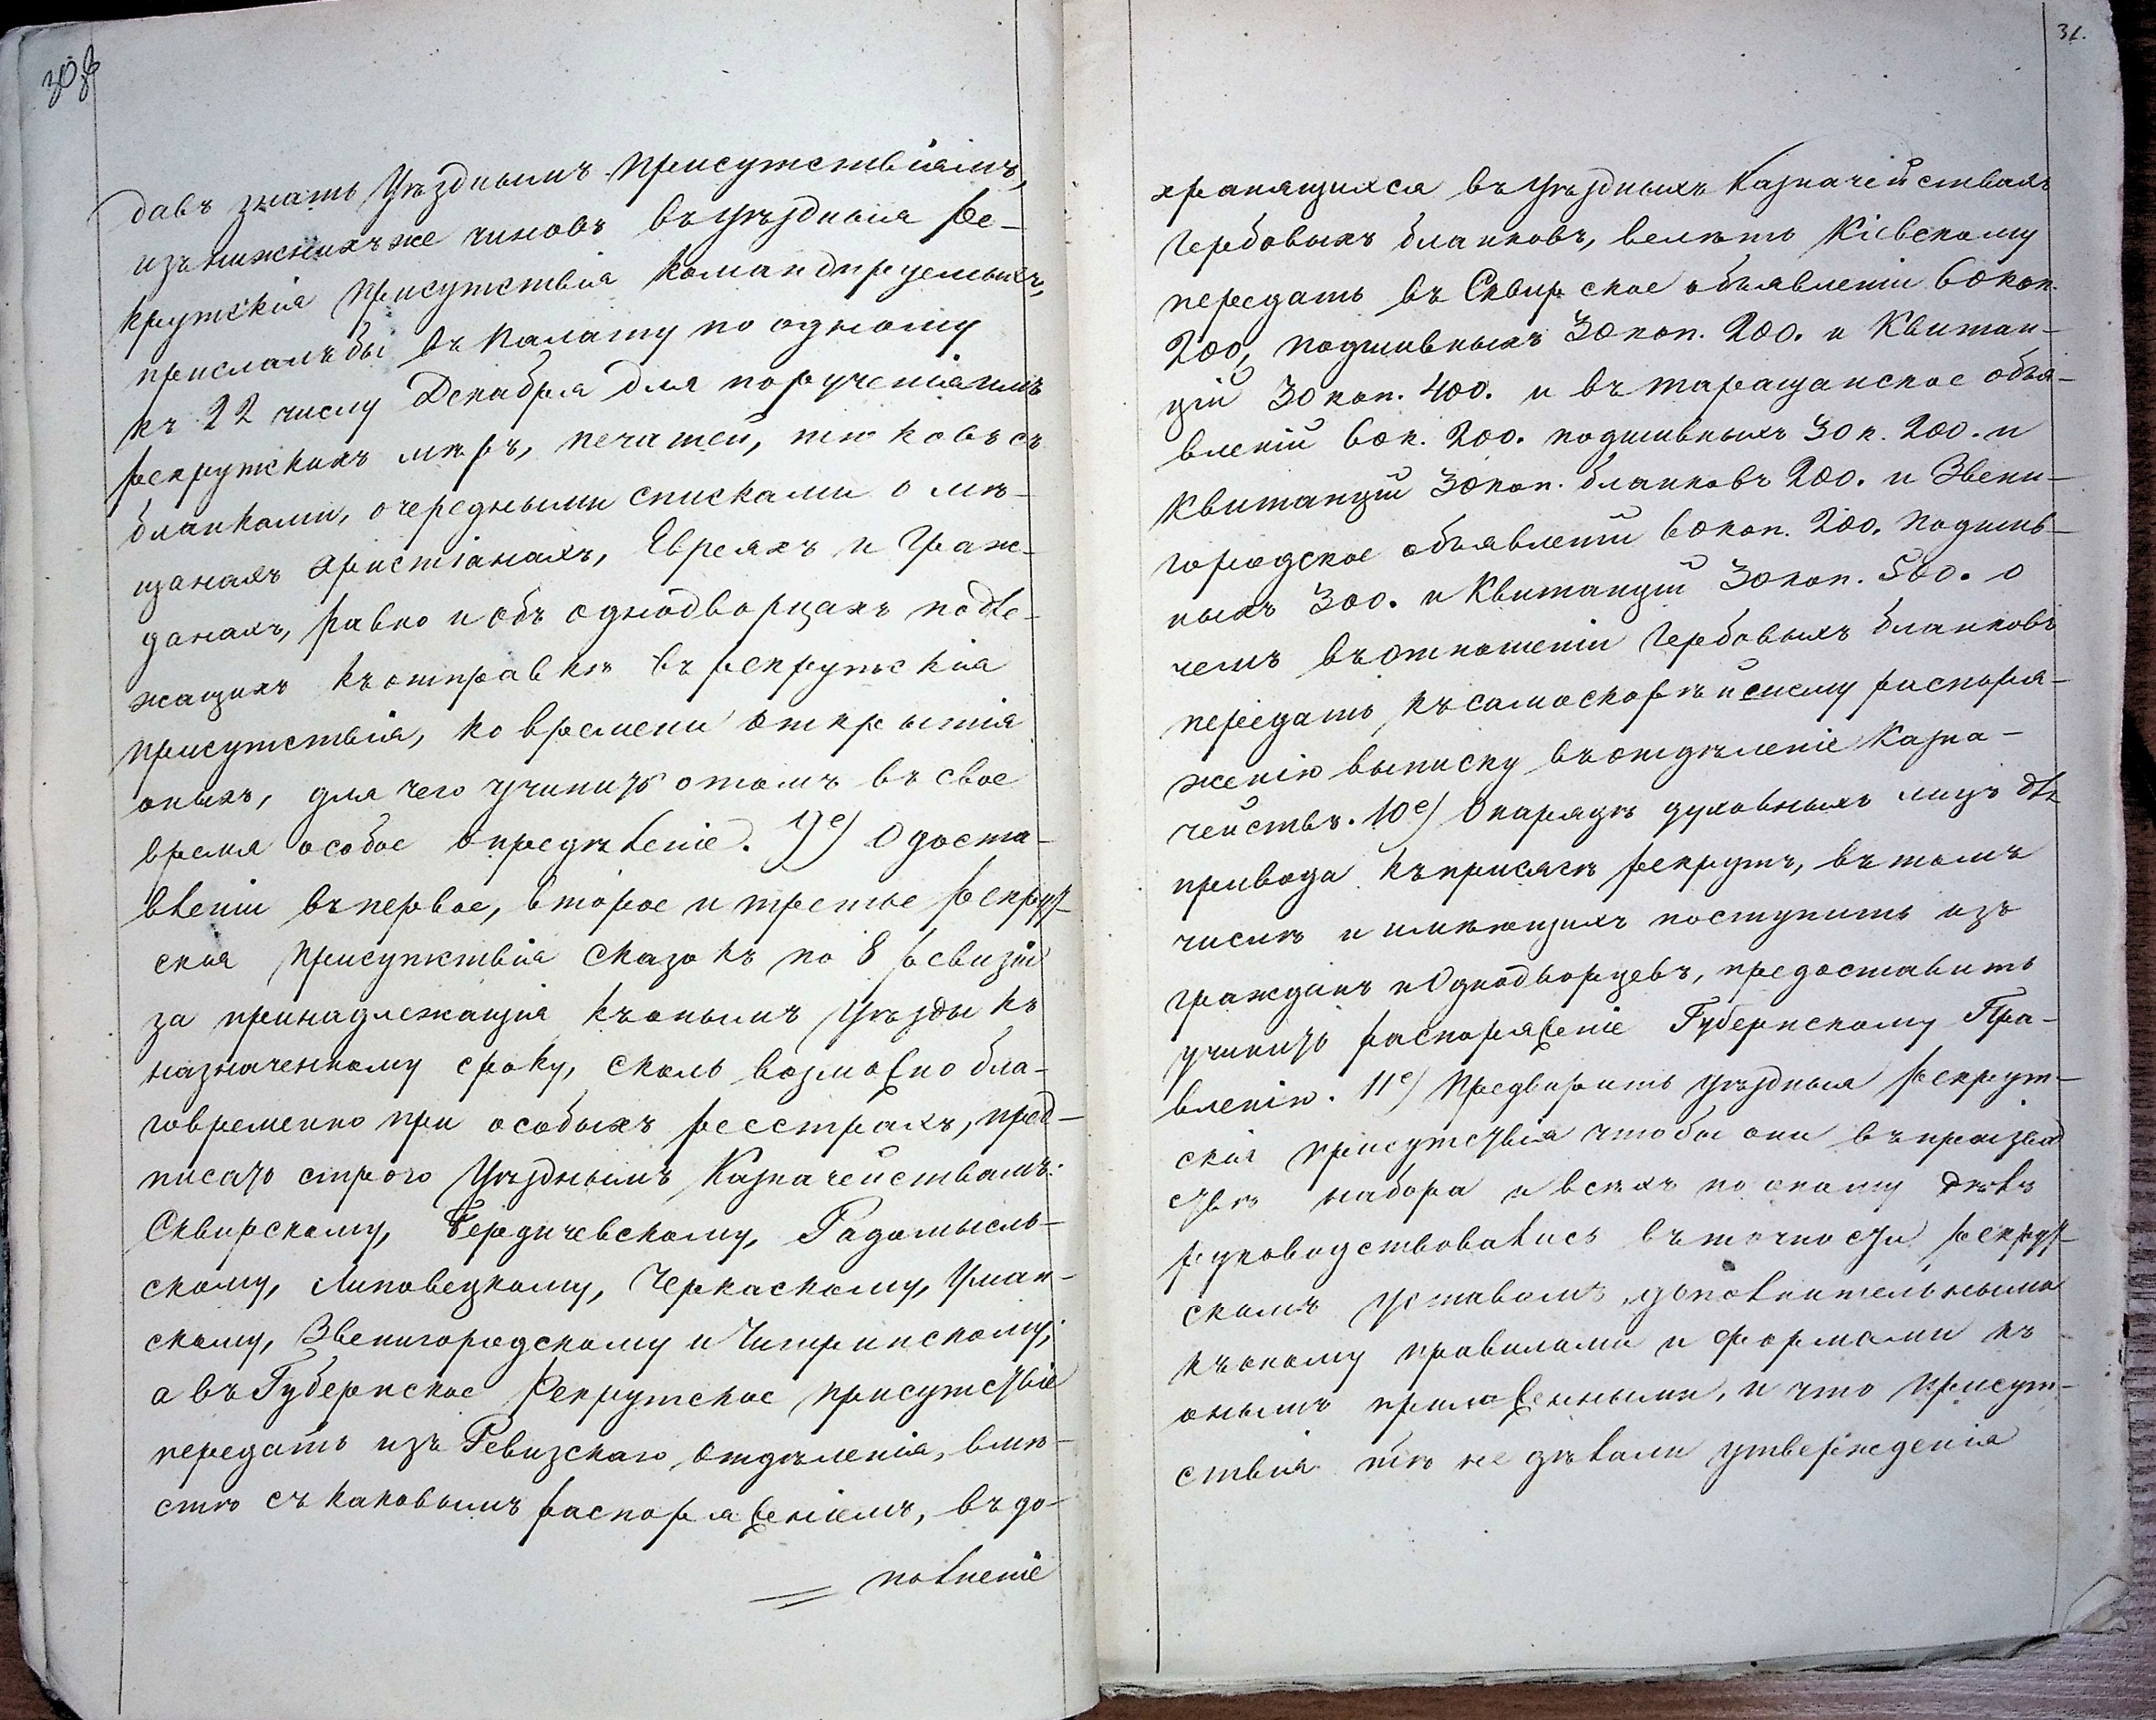 30об
давъ знать Уѣзднымъ Присутствіямъ,
изъ нижнихъ же чиновъ въ Уѣздныя Ре-
крутскія Присутствія командируемыхъ,
прислалъ бы въ Палату по одному
къ 22 числу Декабря для порученія имъ
рекрутскихъ мѣръ, печатей, тюковъ съ
бланками, очередными списками о мѣ-
щанахъ христіанахъ, Евреяхъ и Граж-
данахъ, равно и объ однодворцахъ подле-
жащихъ къ отправкѣ въ рекрутскія
присутствія, ко времени открытія
оныхъ, для чего учинить о томъ въ свое
время особое опредѣленіе. 9е) О доста-
вленіи въ первое, второе и третье рекрут-
скія Присутствія сказокъ по 8 ревизіи
за принадлежащія къ онымъ Уѣзды къ
назначенному сроку, сколь возможно бла-
говременно при особыхъ реестрахъ, пред-
писать строго Уѣзднымъ Казначействамъ:
Сквирскому, Бердичевскому, Радомысль-
скому, Липовецкому, Черкаскому, Уман-
скому, Звенигородскому и Чигринскому;
а въ Губернское Рекрутское присутствіе
передать изъ Ревизскаго отдѣленія, вмѣ-
стѣ съ каковымъ распоряженіемъ, въ до-
полненіе
31.
хранящихся въ Уѣздныхъ Казначействахъ
Гербовыхъ бланковъ, велѣть Кіевскому
передать въ Сквирское объявленіи 60 коп.
200, подшивныхъ 30 коп. 200. и Квитан-
цій 30 коп. 400. и въ таращанское объя-
вленій 60 к. 200. подшивныхъ 30 к. 200. и
Квитанцій 30 коп. бланковъ 200. и Звени-
городское объявленій 60 коп. 200. подшив-
ныхъ 300. и Квитанцій 30 коп. 500. о
чемъ въ отношеніи Гербовыхъ бланковъ
передать къ самоскорѣйшему распоря-
женію выписку въ отдѣленіе Казна-
чействъ. 10е) О нарядѣ духовныхъ лицъ для
привода къ присягѣ рекрутъ, въ томъ
числѣ и имѣющихъ поступить изъ
гражданъ и Однодворцевъ, предоставить
учинить распоряженіе Губернскому Пра-
вленію. 11е) Предварить Уѣздныя рекрут-
скія присутствія чтобы они въ производ
ствѣ набора и всѣхъ по оному дѣлъ
руководствовались въ точности рекрут-
скимъ уставомъ, дополнительными
къ оному правилами и формами къ
онымъ приложенными, и что присут-
ствія тѣ не дѣлали утвержденія